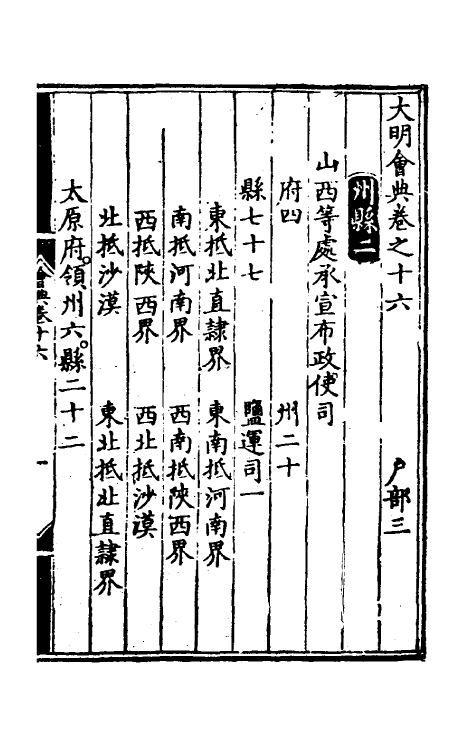 大明會典卷之十六 戶部三
州縣二
山西等處承宣布政使司
府四 州二十
縣七十七 鹽運司一
東抵北直隸界 東南抵河南界
南抵河南界 西南抵陝西界
西抵陝西界 西北抵沙漠
北抵沙漠 東北抵北直隸界
太原府。領州六。縣二十二
會典卷十六 一